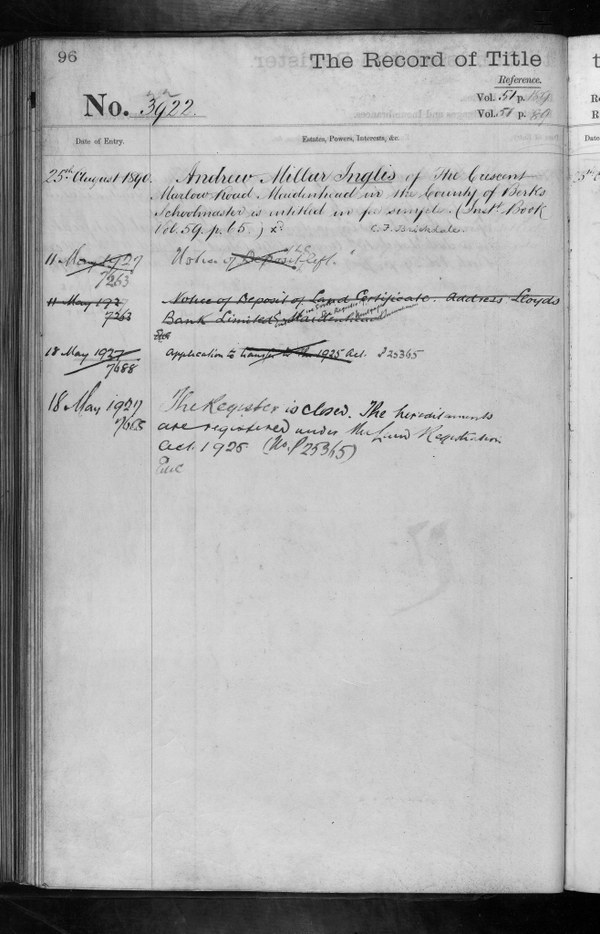 96
The Record of Title
Reference.
Vol. 51 p.
Vol. 51 p.
No. 3922.
Date of Entry.
Estates, Powers, Interests, &c.
25th August 1890. Andrew Millar Inglis of The Crescent
Marlow Road Maidenhead in the County of Berks
Schoolmaster is entitled in fee simple. (Inst. Book
Vol. 59. p. 65.)
C. F. Brickdale.
11 May 1927 Notice of Deposit left.
7263
11 May 1927 Notice of Deposit of Land Certificate. Address Lloyds
7263 Bank Limited Maidenhead
18 May 1927 Application to transfer to the 1925 Act. P 25365
7688
18 May 1927 The Register is closed. The hereditaments
7688 are registered under the Land Registration
Act 1925 (No. P 25365)